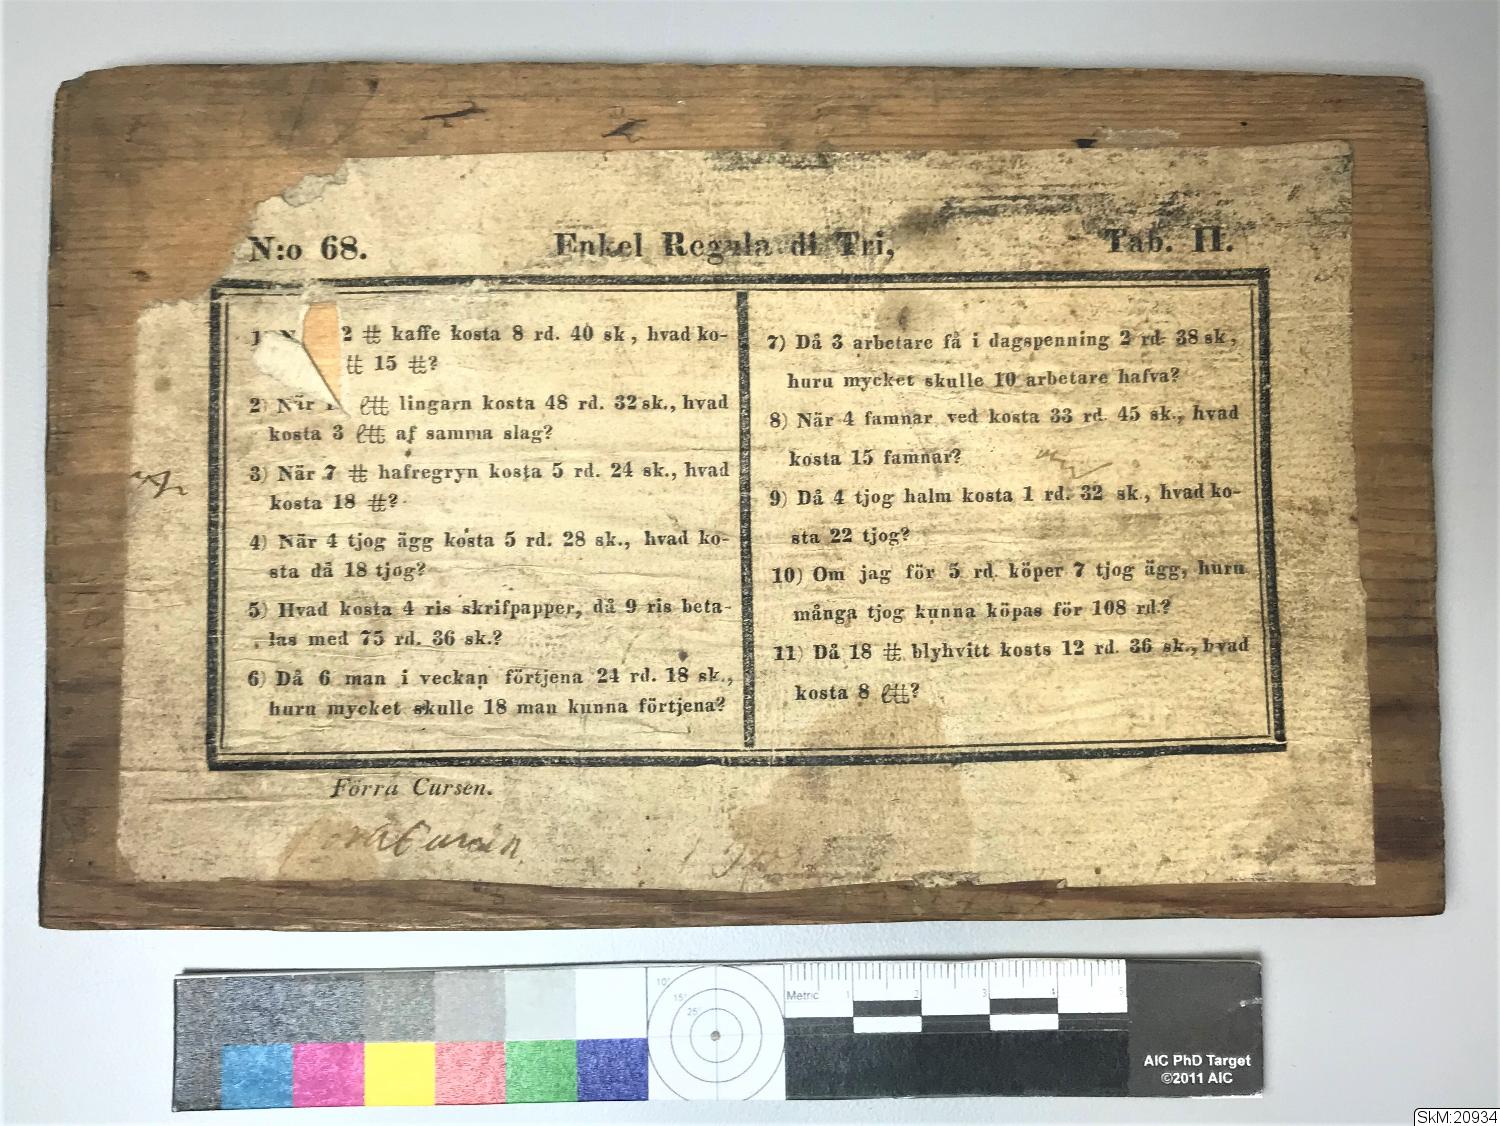 N:o 68. Enkel Regula di Tri, Tab. II.
1) 2 ℔ kaffe kosta 8 rd. 40 sk, hvad ko-
15 ℔?
2) När L℔ lingarn kosta 48 rd. 32 sk., hvad
kosta 3 L℔ af samma slag?
3) När 7 ℔ hafregryn kosta 5 rd. 24 sk., hvad
kosta 18 ℔?
4) När 4 tjog ägg kosta 5 rd. 28 sk., hvad ko-
sta då 18 tjog?
5) Hvad kosta 4 ris skrifpapper, då 9 ris beta-
las med 75 rd. 36 sk.?
6) Då 6 man i veckan förtjena 24 rd. 18 sk.,
huru mycket skulle 18 man kunna förtjena?
7) Då 3 arbetare få i dagspenning 2 rd. 38 sk,
huru mycket skulle 10 arbetare hafva?
8) När 4 famnar ved kosta 33 rd. 45 sk., hvad
kosta 15 famnar?
9) Då 4 tjog halm kosta 1 rd. 32 sk., hvad ko-
sta 22 tjog?
10) Om jag för 5 rd. köper 7 tjog ägg, huru
många tjog kunna köpas för 108 rd.?
11) Då 18 ℔ blyhvitt kosts 12 rd. 36 sk., hvad
kosta 8 L℔?
Förra Cursen.
Cursen
10° 15° 25°
Metric 1 2 3 4 5
AIC PhD Target
©2011 AIC
SkM:20934